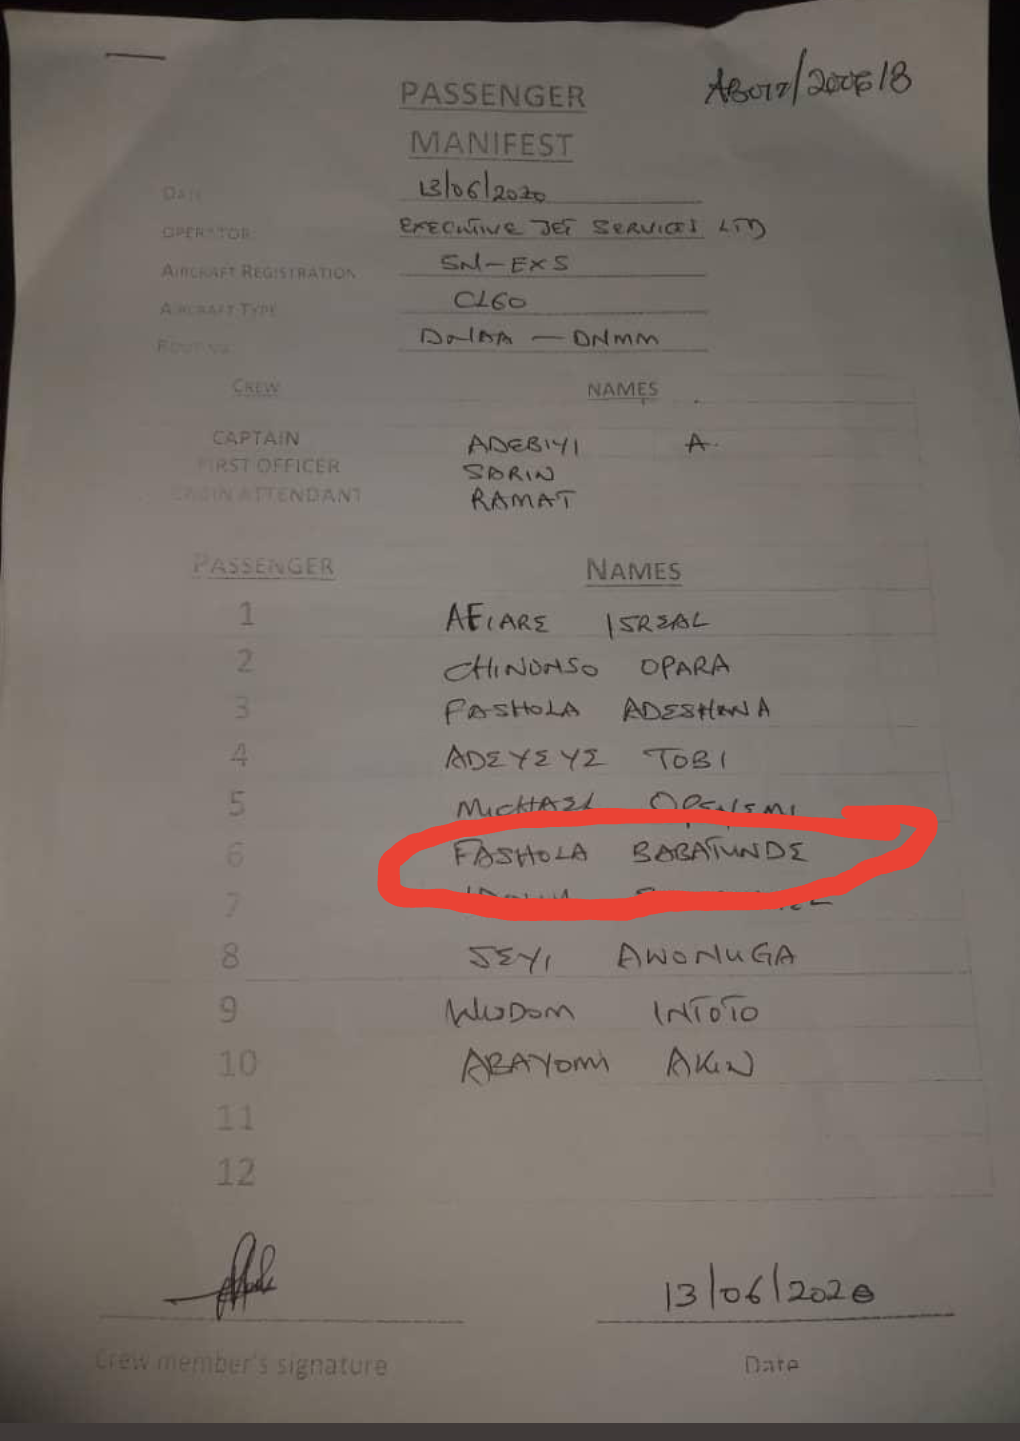 PASSENGER
MANIFEST
DATE 13/06/2020
OPERATOR EXECUTIVE JET SERVICES LTD
AIRCRAFT REGISTRATION 5N-EXS
AIRCRAFT TYPE CL60
ROUTING DNAA — DNMM
CREW NAMES
CAPTAIN ADEBIYI A.
FIRST OFFICER
CABIN ATTENDANT RAMAT
PASSENGER NAMES
1 AFIARE ISREAL
2 CHINONSO OPARA
3 FASHOLA ADESHINA
4 ADEYEYE TOBI
5 MICHAEL
6 FASHOLA BABATUNDE
7
8 SEYI AWONUGA
9 WISDOM INTOTO
10 ABAYOMI AKIN
11
12
13/06/2020
Crew member's signature Date